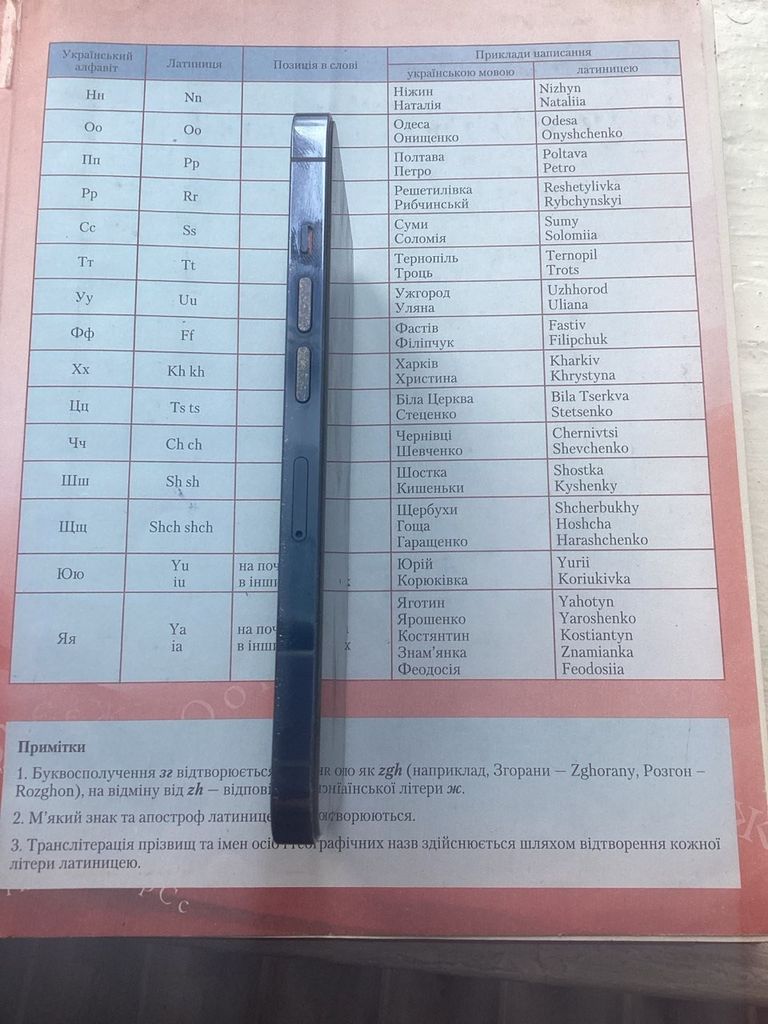 Український алфавіт Латиниця Позиція в слові Приклади написання
українською мовою латиницею
Нн Nn Ніжин Nizhyn
Наталія Nataliia
Оо Oo Одеса Odesa
Онищенко Onyshchenko
Пп Pp Полтава Poltava
Петро Petro
Рр Rr Решетилівка Reshetylivka
Рибчинськй Rybchynskyi
Сс Ss Суми Sumy
Соломія Solomiia
Тт Tt Тернопіль Ternopil
Троць Trots
Уу Uu Ужгород Uzhhorod
Уляна Uliana
Фф Ff Фастів Fastiv
Філіпчук Filipchuk
Хх Kh kh Харків Kharkiv
Христина Khrystyna
Цц Ts ts Біла Церква Bila Tserkva
Стеценко Stetsenko
Чч Ch ch Чернівці Chernivtsi
Шевченко Shevchenko
Шш Sh sh Шостка Shostka
Кишеньки Kyshenky
Щщ Shch shch Щербухи Shcherbukhy
Гоща Hoshcha
Гаращенко Harashchenko
Юю Yu на Юрій Yurii
iu в Корюківка Koriukivka
Яя Ya на Яготин Yahotyn
ia в Ярошенко Yaroshenko
Костянтин Kostiantyn
Знам'янка Znamianka
Феодосія Feodosiia
Примітки
1. Буквосполучення зг відтворюється як zgh (наприклад, Згорани — Zghorany, Розгон –
Rozghon), на відміну від zh — літери ж.
2. М'який знак та апостроф
3. Транслітерація прізвищ та імен назв здійснюється шляхом відтворення кожної
літери латиницею.